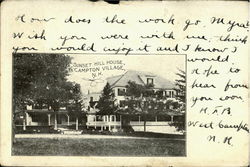 How does the work go. Myra
Wish you were with me. think
you would enjoy it and I know I
would.
Hope to
hear from
you soon
West Campton
N. H.
SUNSET HILL HOUSE,
CAMPTON VILLAGE,
N.H.